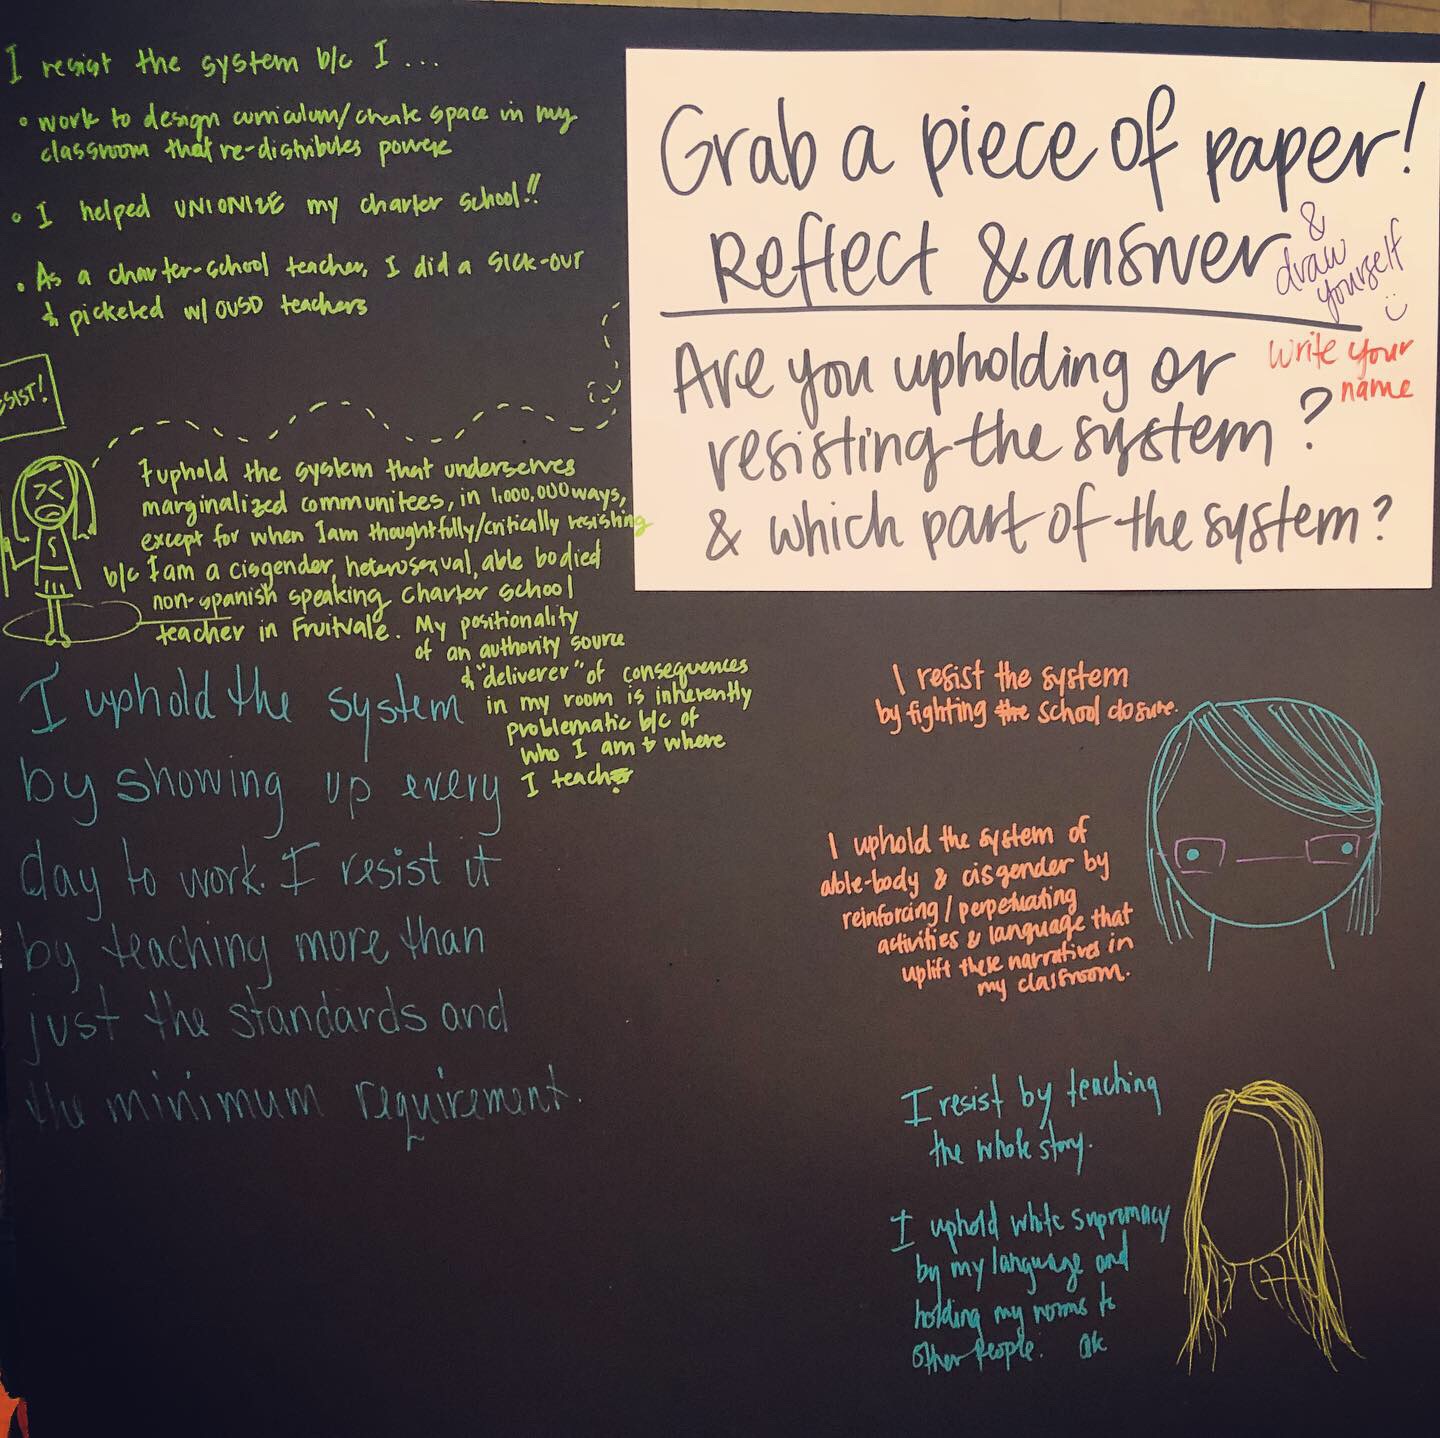 I resist the system b/c I ...
• work to design curriculum/create space in my
classroom that re-distributes power
• I helped UNIONIZE my charter school!!
• As a charter-school teacher, I did a sick-out
& picketed w/ OUSD teachers
ESIST!
I uphold the system that underserves
marginalized communitees, in 1,000,000 ways,
except for when I am thoughtfully/critically resisting
b/c I am a cisgender, heterosexual, able bodied
non-spanish speaking charter school
teacher in Fruitvale. My positionality
of an authority source
& "deliverer" of consequences
in my room is inherently
problematic b/c of
who I am & where
I teach.
I uphold the system
by showing up every
day to work. I resist it
by teaching more than
just the standards and
the minimum requirement.
Grab a piece of paper!
Reflect & answer
& draw
yourself
write your
name
Are you upholding or
resisting the system?
& which part of the system?
I resist the system
by fighting the school closure.
I uphold the system of
able-body & cisgender by
reinforcing/perpetuating
activities & language that
uplift these narratives in
my classroom.
I resist by teaching
the whole story.
I uphold white supremacy
by my language and
holding my norms to
other people. ak